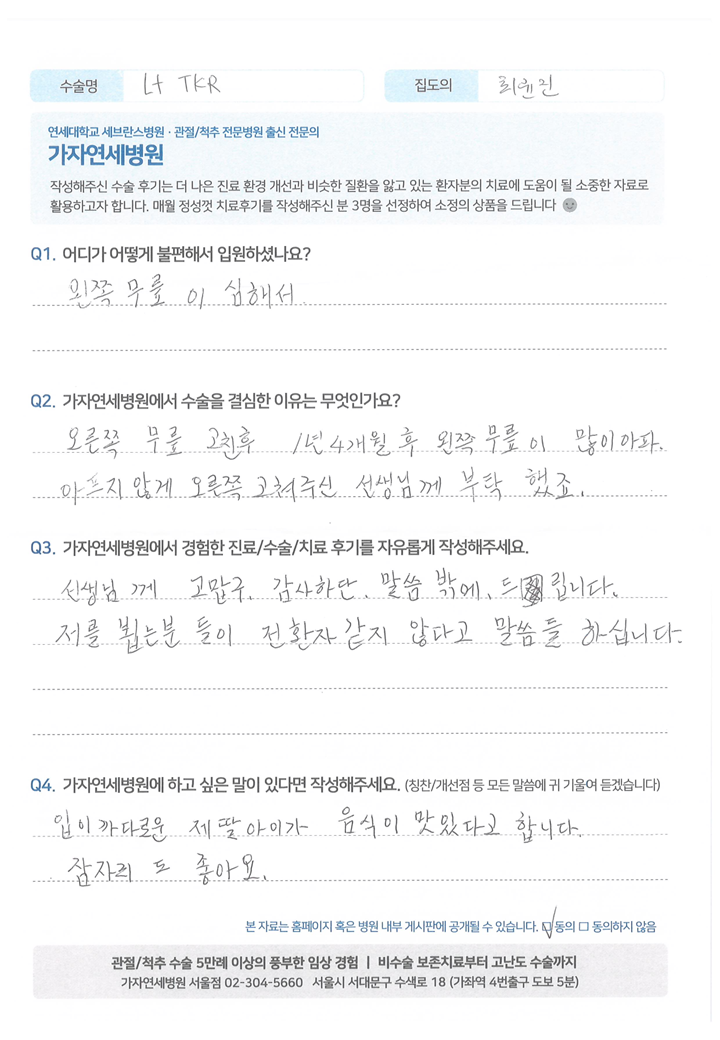 수술명 Lt TKR 집도의 최윤진
연세대학교 세브란스병원 · 관절/척추 전문병원 출신 전문의
가자연세병원
작성해주신 수술 후기는 더 나은 진료 환경 개선과 비슷한 질환을 앓고 있는 환자분의 치료에 도움이 될 소중한 자료로
활용하고자 합니다. 매월 정성껏 치료후기를 작성해주신 분 3명을 선정하여 소정의 상품을 드립니다
Q1. 어디가 어떻게 불편해서 입원하셨나요?
왼쪽 무릎 이 심해서
Q2. 가자연세병원에서 수술을 결심한 이유는 무엇인가요?
오른쪽 무릎 고친후 1년4개월 후 왼쪽 무릎이 많이아파.
아프지 않게 오른쪽 고쳐주신 선생님께 부탁 했죠.
Q3. 가자연세병원에서 경험한 진료/수술/치료 후기를 자유롭게 작성해주세요.
선생님 께 고맙구. 감사하단. 말씀 밖에. 드립니다.
저를 뵙는분 들이 전환자같지 않다고 말씀들 하십니다.
Q4. 가자연세병원에 하고 싶은 말이 있다면 작성해주세요. (칭찬/개선점 등 모든 말씀에 귀 기울여 듣겠습니다)
입이까다로운 제딸아이가 음식이 맛있다고 합니다.
잠자리 도 좋아요.
본 자료는 홈페이지 혹은 병원 내부 게시판에 공개될 수 있습니다. ☑ 동의 □ 동의하지 않음
관절/척추 수술 5만례 이상의 풍부한 임상 경험 | 비수술 보존치료부터 고난도 수술까지
가자연세병원 서울점 02-304-5660 서울시 서대문구 수색로 18 (가좌역 4번출구 도보 5분)